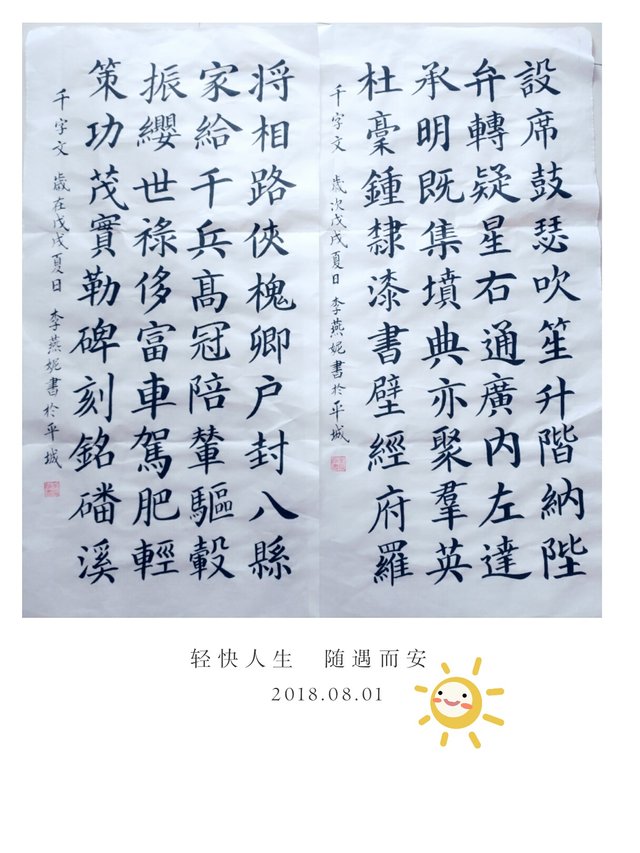 設席鼓瑟吹笙升階納陛
弁轉疑星右通廣内左達
承明既集墳典亦聚羣英
杜稾鍾隸漆書壁經府羅
千字文 歲次戊戌夏日 李燕妮書於平城
将相路俠槐卿户封八縣
家給千兵髙冠陪輦驅轂
振纓世祿侈富車駕肥輕
策功茂實勒碑刻銘磻溪
千字文 歲在戊戌夏日 李燕妮書於平城
轻快人生 随遇而安
2018.08.01